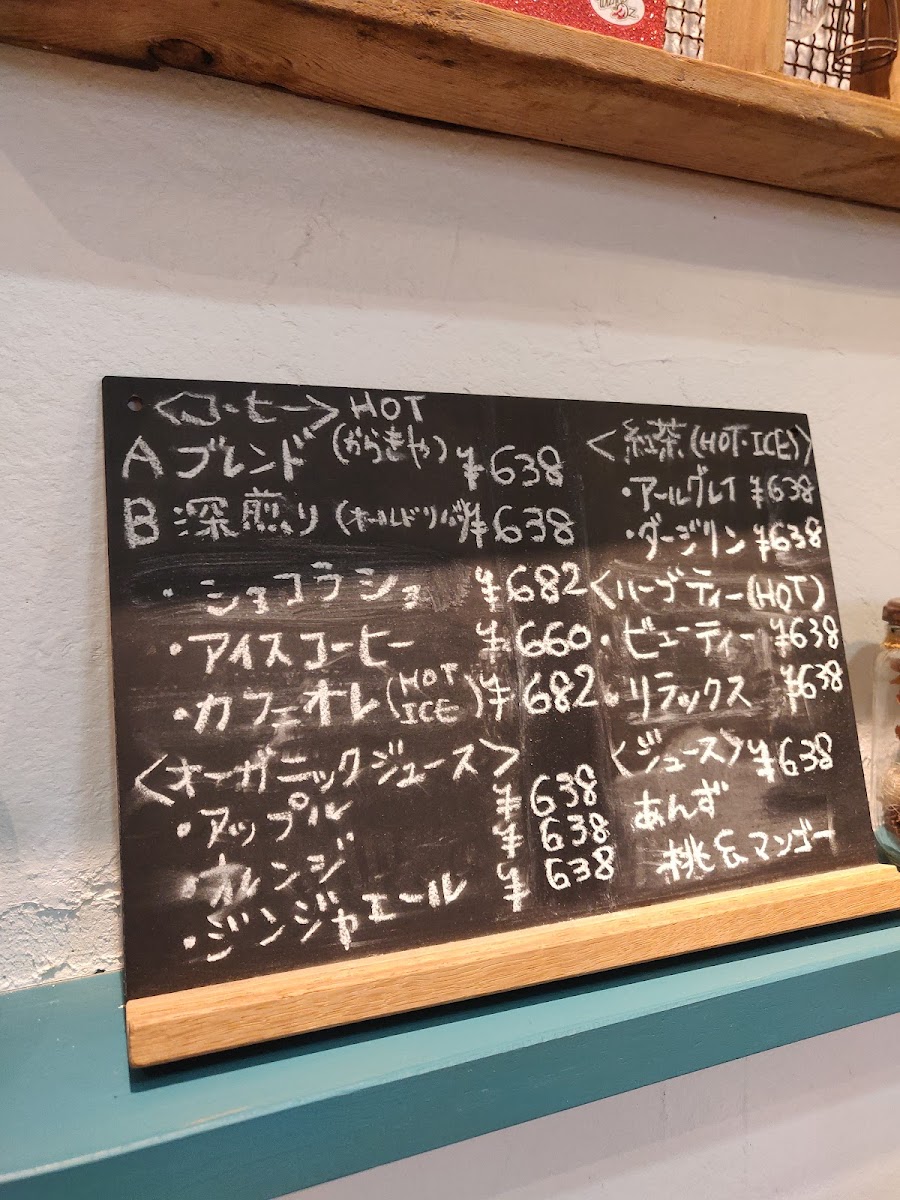 <コーヒー> HOT
A ブレンド (からきや) ¥638
B 深煎り (オールドリバー) ¥638
・ショコラショ ¥682
・アイスコーヒー ¥660
・カフェオレ (HOT ICE) ¥682
<オーガニックジュース>
・アップル ¥638
・オレンジ ¥638
・ジンジャエール ¥638
<紅茶 (HOT・ICE)>
・アールグレイ ¥638
・ダージリン ¥638
<ハーブティー (HOT)
・ビューティー ¥638
・リラックス ¥638
<ジュース> ¥638
あんず
桃&マンゴー